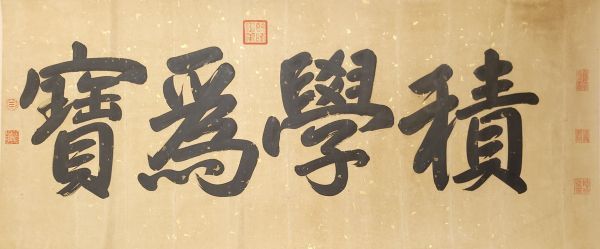 積學爲寶